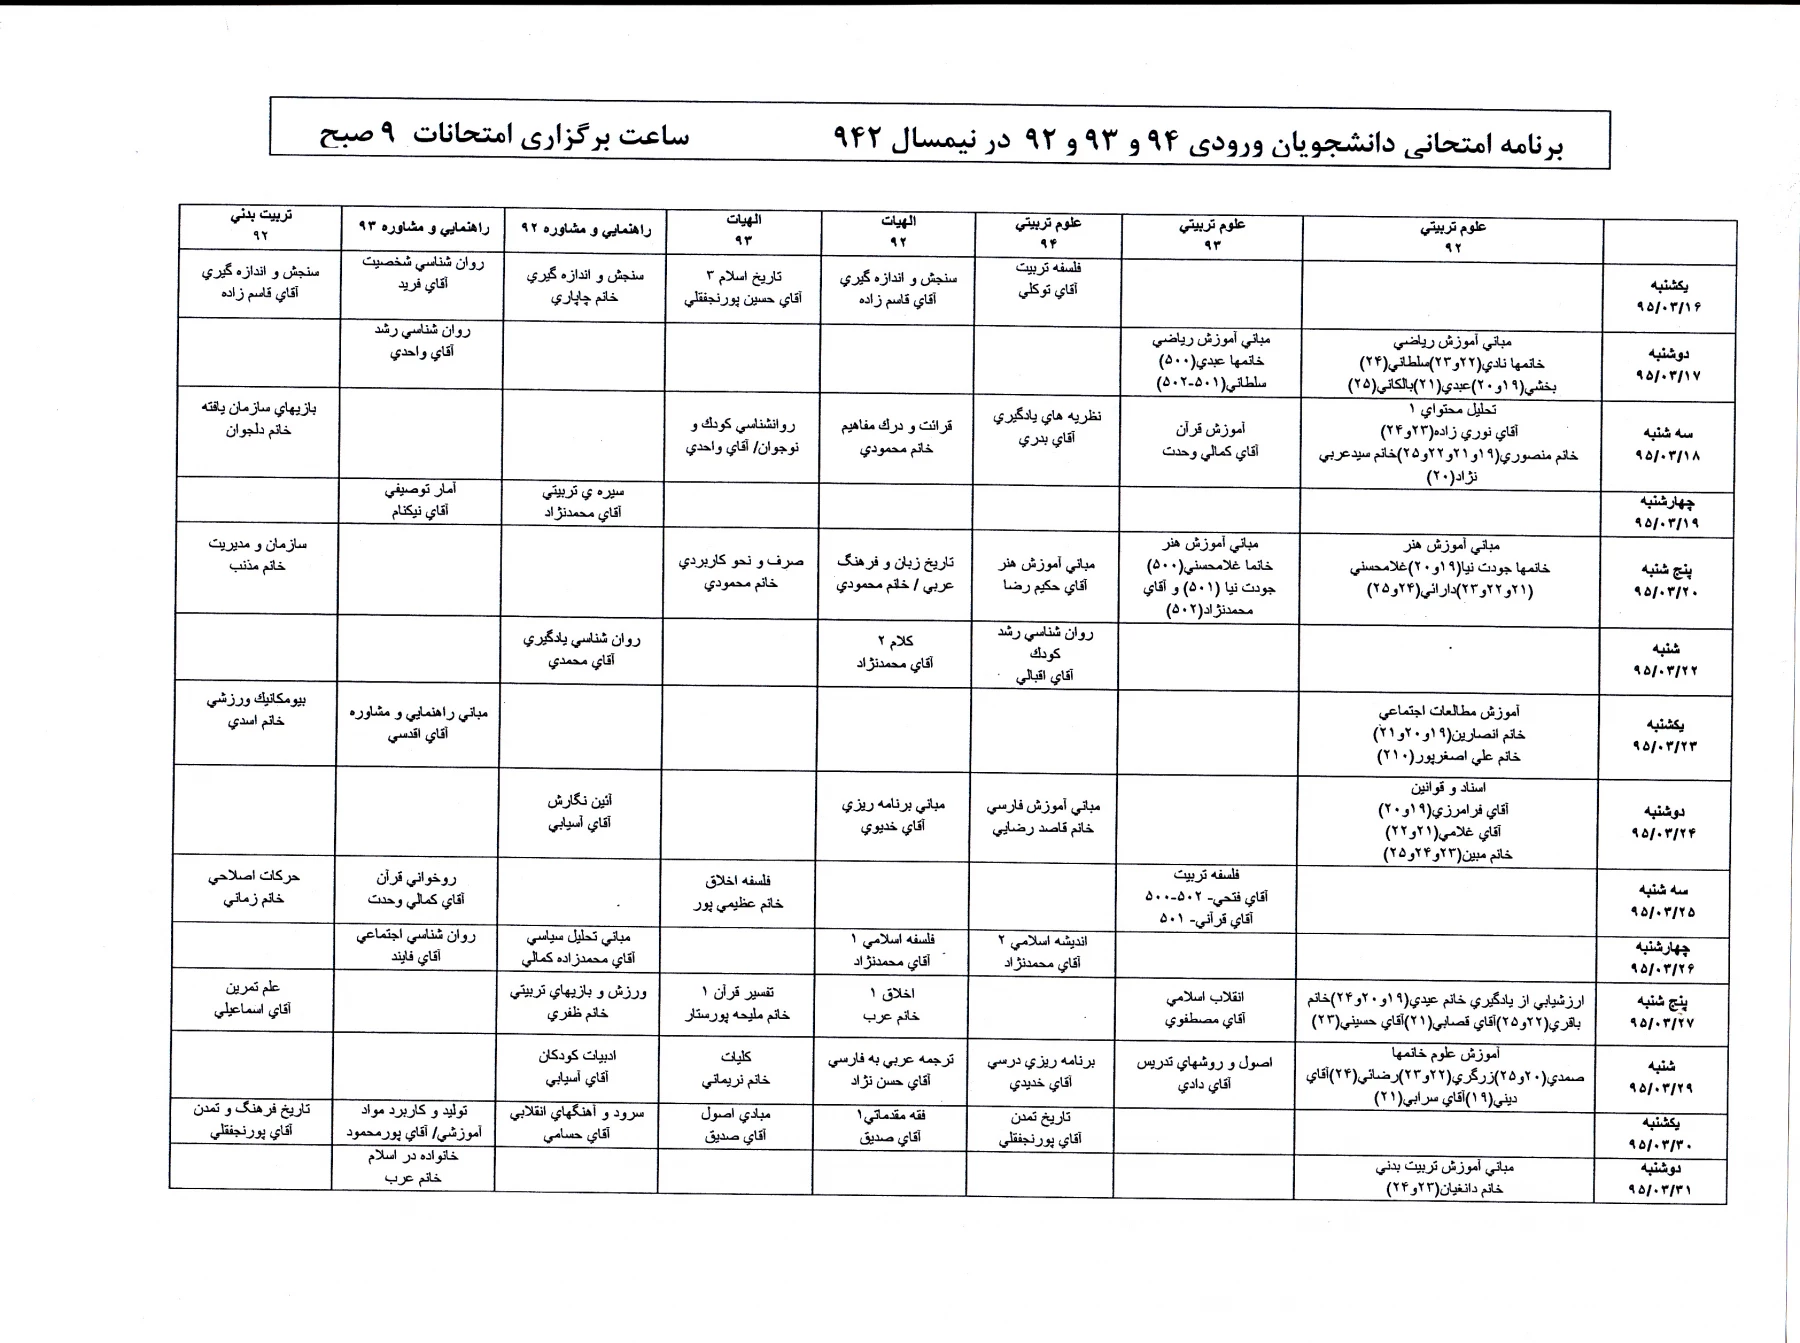 برنامه امتحاني دانشجويان ورودي ۹۴ و ۹۳ و ۹۲ در نيمسال ۹۴۲ ساعت برگزاري امتحانات ۹ صبح
علوم تربيتي
۹۲
علوم تربيتي
۹۳
علوم تربيتي
۹۴
الهيات
۹۲
الهيات
۹۳
راهنمايي و مشاوره ۹۲
راهنمايي و مشاوره ۹۳
تربيت بدني
۹۲
يكشنبه
۹۵/۰۳/۱۶
فلسفه تربيت
آقاي توكلي
سنجش و اندازه گيري
آقاي قاسم زاده
تاريخ اسلام ۳
آقاي حسين پورنجفقلي
سنجش و اندازه گيري
خانم چاپاري
روان شناسي شخصيت
آقاي فريد
سنجش و اندازه گيري
آقاي قاسم زاده
دوشنبه
۹۵/۰۳/۱۷
مباني آموزش رياضي
خانمها نادي(۲۲و۲۳)سلطاني(۲۴)
بخشي(۱۹و۲۰)عبدي(۲۱)بالكاني(۲۵)
مباني آموزش رياضي
خانمها عبدي(۵۰۰)
سلطاني(۵۰۱-۵۰۲)
روان شناسي رشد
آقاي واحدي
سه شنبه
۹۵/۰۳/۱۸
تحليل محتواي ۱
آقاي نوري زاده(۲۳و۲۴)
خانم منصوري(۱۹و۲۱و۲۲و۲۵)خانم سيدعربي
نژاد(۲۰)
آموزش قرآن
آقاي كمالي وحدت
نظريه هاي يادگيري
آقاي بدري
قرائت و درك مفاهيم
خانم محمودي
روانشناسي كودك و
نوجوان/ آقاي واحدي
بازيهاي سازمان يافته
خانم دلجوان
چهارشنبه
۹۵/۰۳/۱۹
سيره ي تربيتي
آقاي محمدنژاد
آمار توصيفي
آقاي نيكنام
پنج شنبه
۹۵/۰۳/۲۰
مباني آموزش هنر
خانمها جودت نيا(۱۹و۲۰)غلامحسني
(۲۱و۲۲و۲۳)دارائي(۲۴و۲۵)
مباني آموزش هنر
خانما غلامحسني(۵۰۰)
جودت نيا (۵۰۱) و آقاي
محمدنژاد(۵۰۲)
مباني آموزش هنر
آقاي حكيم رضا
تاريخ زبان و فرهنگ
عربي / خانم محمودي
صرف و نحو كاربردي
خانم محمودي
سازمان و مديريت
خانم مذنب
شنبه
۹۵/۰۳/۲۲
روان شناسي رشد
كودك
آقاي اقبالي
كلام ۲
آقاي محمدنژاد
روان شناسي يادگيري
آقاي محمدي
يكشنبه
۹۵/۰۳/۲۳
آموزش مطالعات اجتماعي
خانم انصارين(۱۹و۲۰و۲۱)
خانم علي اصغرپور(۲۱۰)
مباني راهنمايي و مشاوره
آقاي اقدسي
بيومكانيك ورزشي
خانم اسدي
دوشنبه
۹۵/۰۳/۲۴
اسناد و قوانين
آقاي فرامرزي(۱۹و۲۰)
آقاي غلامي(۲۱و۲۲)
خانم مبين(۲۳و۲۴و۲۵)
مباني آموزش فارسي
خانم قاصد رضايي
مباني برنامه ريزي
آقاي خديوي
آئين نگارش
آقاي آسيابي
سه شنبه
۹۵/۰۳/۲۵
فلسفه تربيت
آقاي فتحي- ۵۰۲-۵۰۰
آقاي قرآني- ۵۰۱
فلسفه اخلاق
خانم عظيمي پور
روخواني قرآن
آقاي كمالي وحدت
حركات اصلاحي
خانم زماني
چهارشنبه
۹۵/۰۳/۲۶
انديشه اسلامي ۲
آقاي محمدنژاد
فلسفه اسلامي ۱
آقاي محمدنژاد
مباني تحليل سياسي
آقاي محمدزاده كمالي
روان شناسي اجتماعي
آقاي فايند
پنج شنبه
۹۵/۰۳/۲۷
ارزشيابي از يادگيري خانم عبدي(۱۹و۲۰و۲۴)خانم
باقري(۲۲و۲۵)آقاي قصابي(۲۱)آقاي حسيني(۲۳)
انقلاب اسلامي
آقاي مصطفوي
اخلاق ۱
خانم عرب
تفسير قرآن ۱
خانم مليحه پورستار
ورزش و بازيهاي تربيتي
خانم ظفري
علم تمرين
آقاي اسماعيلي
شنبه
۹۵/۰۳/۲۹
آموزش علوم خانمها
صمدي(۲۰و۲۵)زرگري(۲۲و۲۳)رضائي(۲۴)آقاي
ديني(۱۹)آقاي سرابي(۲۱)
اصول و روشهاي تدريس
آقاي دادي
برنامه ريزي درسي
آقاي خديدي
ترجمه عربي به فارسي
آقاي حسن نژاد
كليات
خانم نريماني
ادبيات كودكان
آقاي آسيابي
يكشنبه
۹۵/۰۳/۳۰
تاريخ تمدن
آقاي پورنجفقلي
فقه مقدماتي۱
آقاي صديق
مبادي اصول
آقاي صديق
سرود و آهنگهاي انقلابي
آقاي حسامي
توليد و كاربرد مواد
آموزشي/ آقاي پورمحمود
تاريخ فرهنگ و تمدن
آقاي پورنجفقلي
دوشنبه
۹۵/۰۳/۳۱
مباني آموزش تربيت بدني
خانم دانغيان(۲۳و۲۴)
خانواده در اسلام
خانم عرب